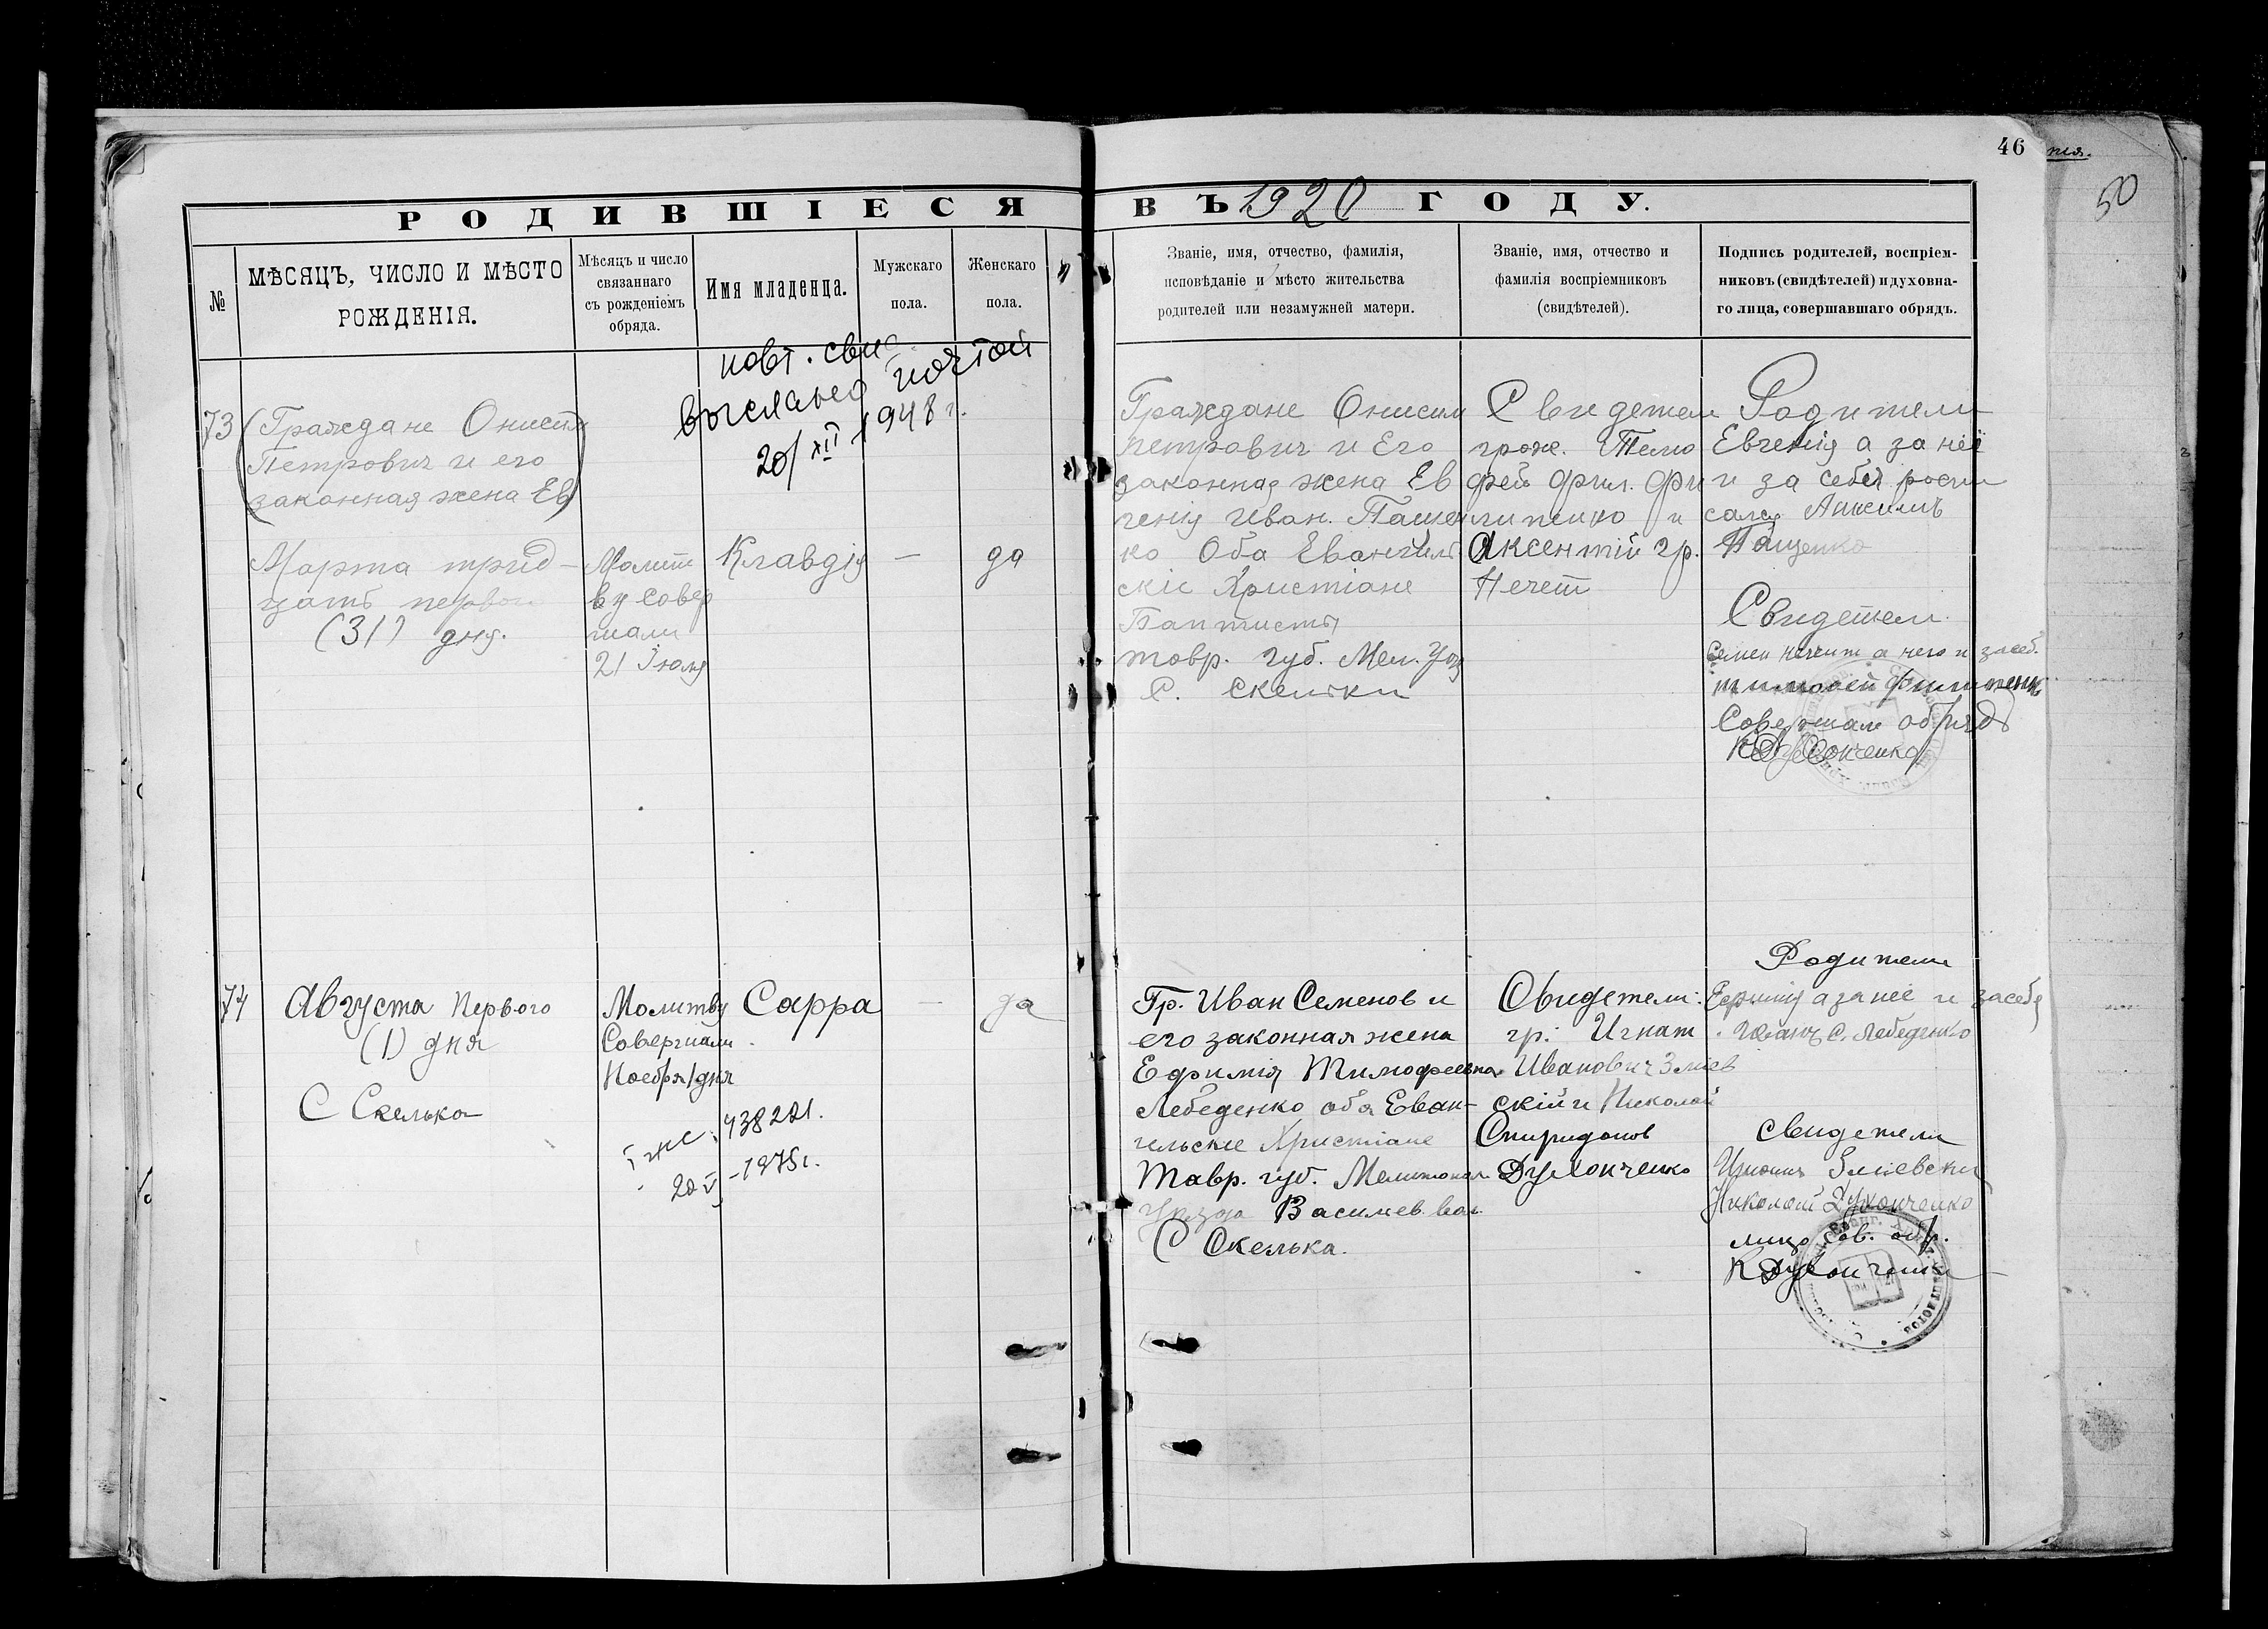 46
50
РОДИВШІЕСЯ ВЪ 1920 ГОДУ.
№
МѢСЯЦЪ, ЧИСЛО И МѢСТО
РОЖДЕНІЯ.
Мѣсяцъ и число
связаннаго
съ рожденіемъ
обряда.
Имя младенца.
Мужскаго
пола.
Женскаго
пола.
Званіе, имя, отчество, фамилія,
исповѣданіе и мѣсто жительства
родителей или незамужней матери.
Званіе, имя, отчество и
фамилія воспріемниковъ
(свидѣтелей).
Подпись родителей, воспріем-
никовъ (свидѣтелей) и духовна-
го лица, совершавшаго обрядъ.
повт. свид
выслано почтой
20/XII 1948 г.
73
(Граждане Онисим
Петрович и его
законная жена Ев)
Марта трид-
цать первого
(31) дня.
Молит
ву совер
шали
21 Июля
Клавдія
—
да
Граждане Онисим
Петрович и Его
законная жена Ев
гения Иван. Пащен
ко Оба Евангель
скіе Христіане
Баптисты
Тавр. губ. Мел. Уез
С. Скельки
Свидетели
граж. Тимо
фей Фил. Фи
липенко и
Аксентий гр.
Нечет
Родители
Евгения а за неё
и за себя роспи
сался Анисимъ
Пащенко
Свидетели
Семен Нечит а него и за себ.
тимофей филипенк
Совершал обряд
К Духонченко
74
Августа Первого
(1) дня
С Скелька
Молитву
Совершали
Ноября 1 дня
438221.
20 V -1975 г.
Сарра
—
да
Гр. Иван Семенов и
его законная жена
Ефимія Тимофеевна
Лебеденко оба Еван-
гельские Христіане
Тавр. губ. Мелитопол
Уезда Василев. вол.
С Скелька.
Свидетели:
гр. Игнат
Иванович Зміев
скій и Николай
Спиридонов
Духонченко
Родители
Ефимія а за неё и за себя
Иванъ С. Лебеденко
Свидетели
Игнатъ Зміевски
Николай Духонченко
лицо сов. обр.
К Духонченко